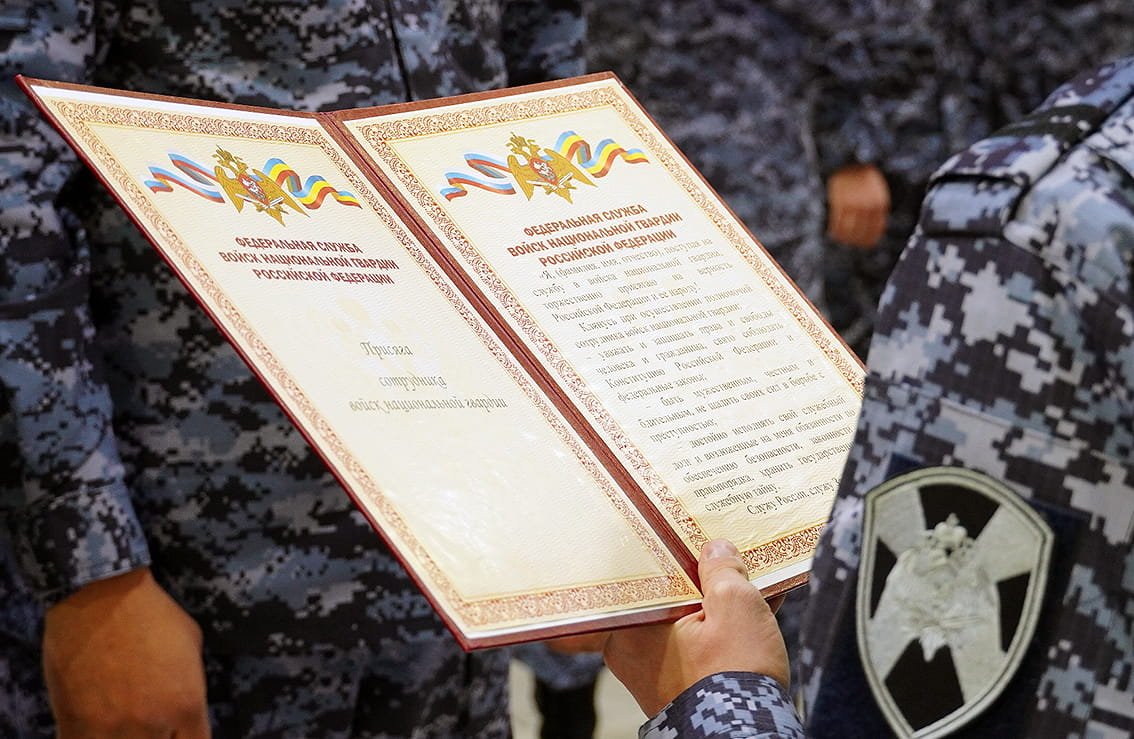 ФЕДЕРАЛЬНАЯ СЛУЖБА
ВОЙСК НАЦИОНАЛЬНОЙ ГВАРДИИ
РОССИЙСКОЙ ФЕДЕРАЦИИ
Присяга
сотрудника
войск национальной гвардии
ФЕДЕРАЛЬНАЯ СЛУЖБА
ВОЙСК НАЦИОНАЛЬНОЙ ГВАРДИИ
РОССИЙСКОЙ ФЕДЕРАЦИИ
"Я (фамилия, имя, отчество), поступая на
службу в войска национальной гвардии,
торжественно присягаю на верность
Российской Федерации и ее народу!
Клянусь при осуществлении полномочий
сотрудника войск национальной гвардии:
- уважать и защищать права и свободы
человека и гражданина, свято соблюдать
Конституцию Российской Федерации и
федеральные законы;
- быть мужественным, честным и
бдительным, не щадить своих сил в борьбе с
преступностью;
- достойно исполнять свой служебный
долг и возложенные на меня обязанности по
обеспечению безопасности, законности
правопорядка, хранить государственн
служебную тайну.
Служу России, служу